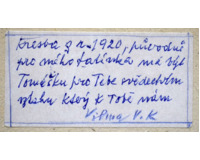 Kresba z r. 1920, původně
pro mého tatínka má být
Tomášku pro Tebe svědectvím
vztahu který k Tobě mám
Vilma V.K